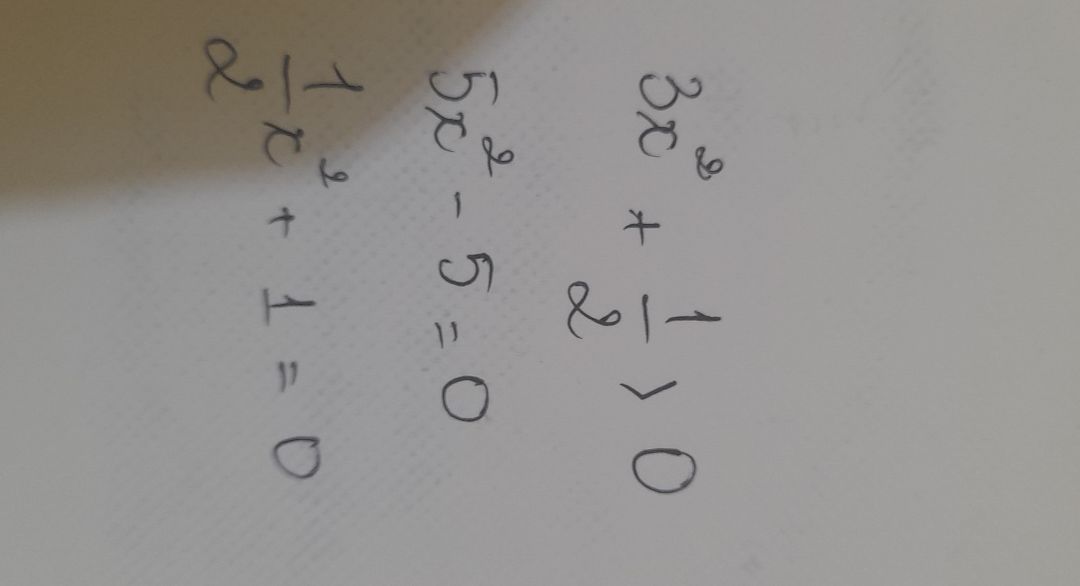 3x² + 1/2 > 0
5x² - 5 = 0
1/2 x² + 1 = 0